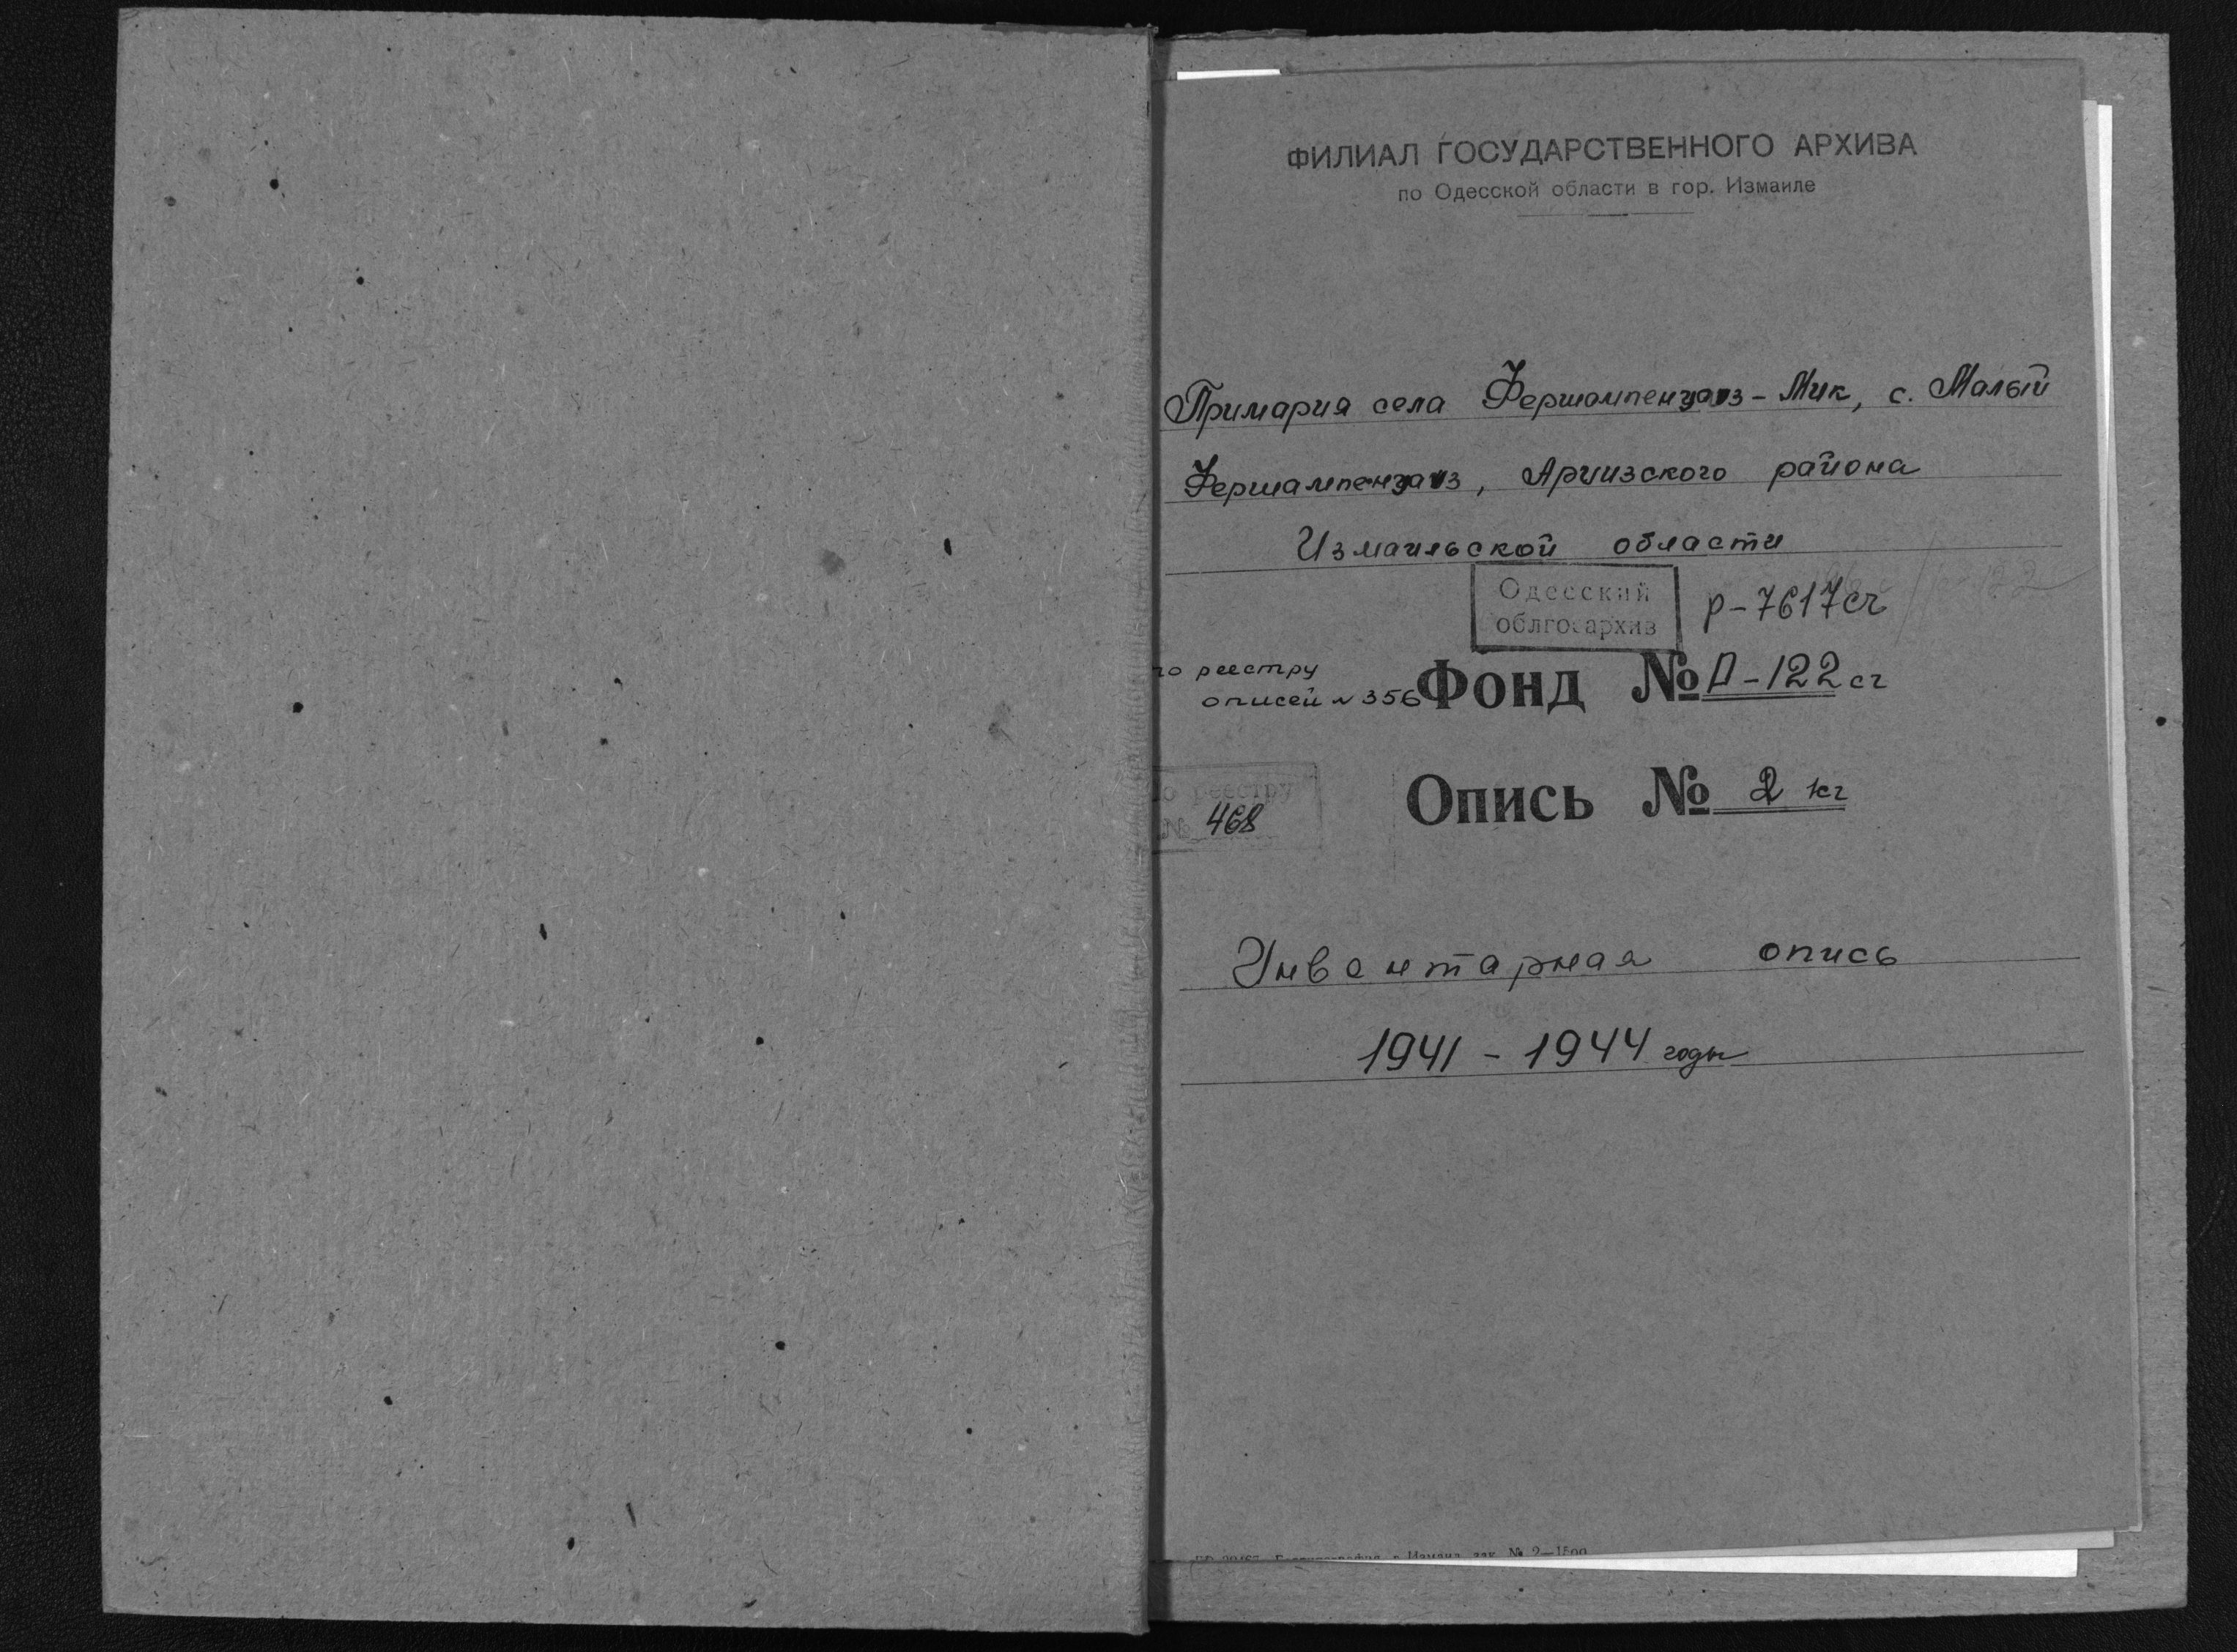 ФИЛИАЛ ГОСУДАРСТВЕННОГО АРХИВА
по Одесской области в гор. Измаиле
Примария села Фершампенуаз-Мик, с. Малый
Фершампенуаз, Арцизского района
Измаильской области
Одесский
облгосархив
Р-7617сч
по реестру
описей № 356
Фонд №
122 сч
Опись № 2
по реестру
№ 468
Инвентарная опись
1941 - 1944 годы
Измаил, зак. № 2—1500